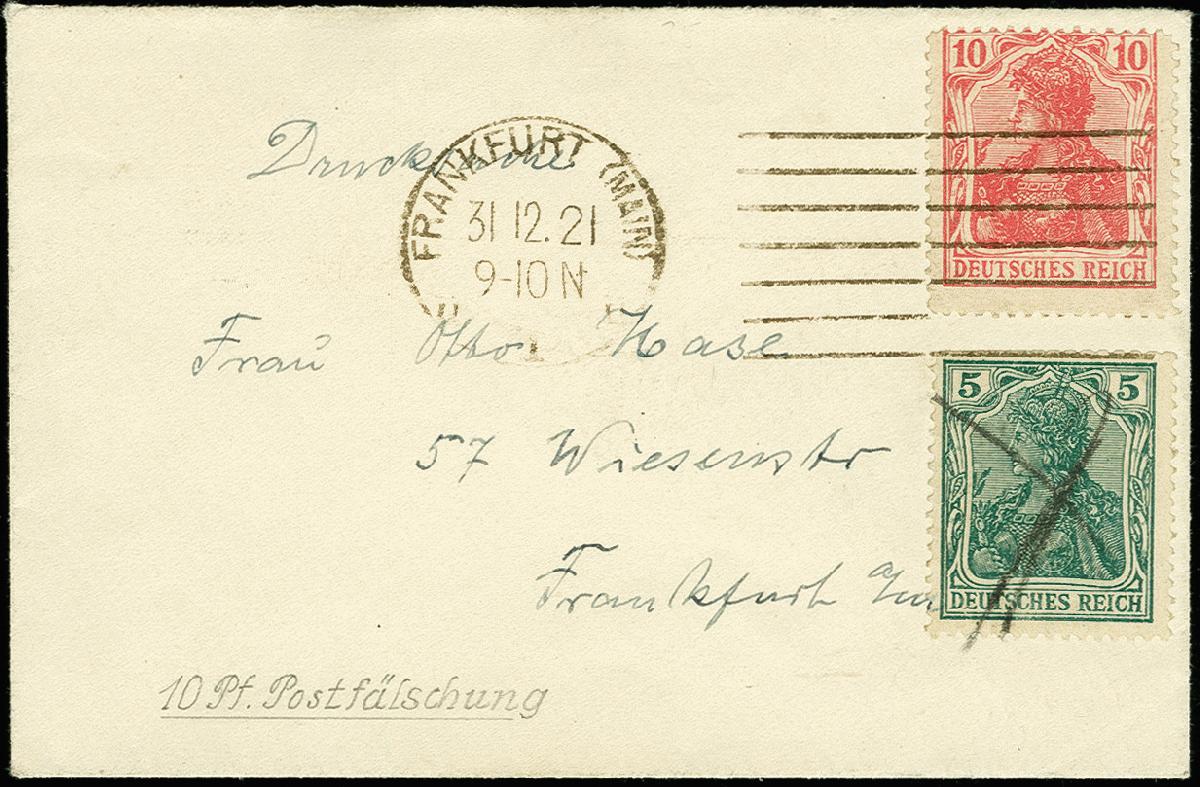 10 10
DEUTSCHES REICH
Drucksache
FRANKFURT (MAIN)
31 12. 21
9-10 N
Frau Otto Hase
5 5
DEUTSCHES REICH
57 Wiesenstr
Frankfurt a/
10 Pf. Postfälschung